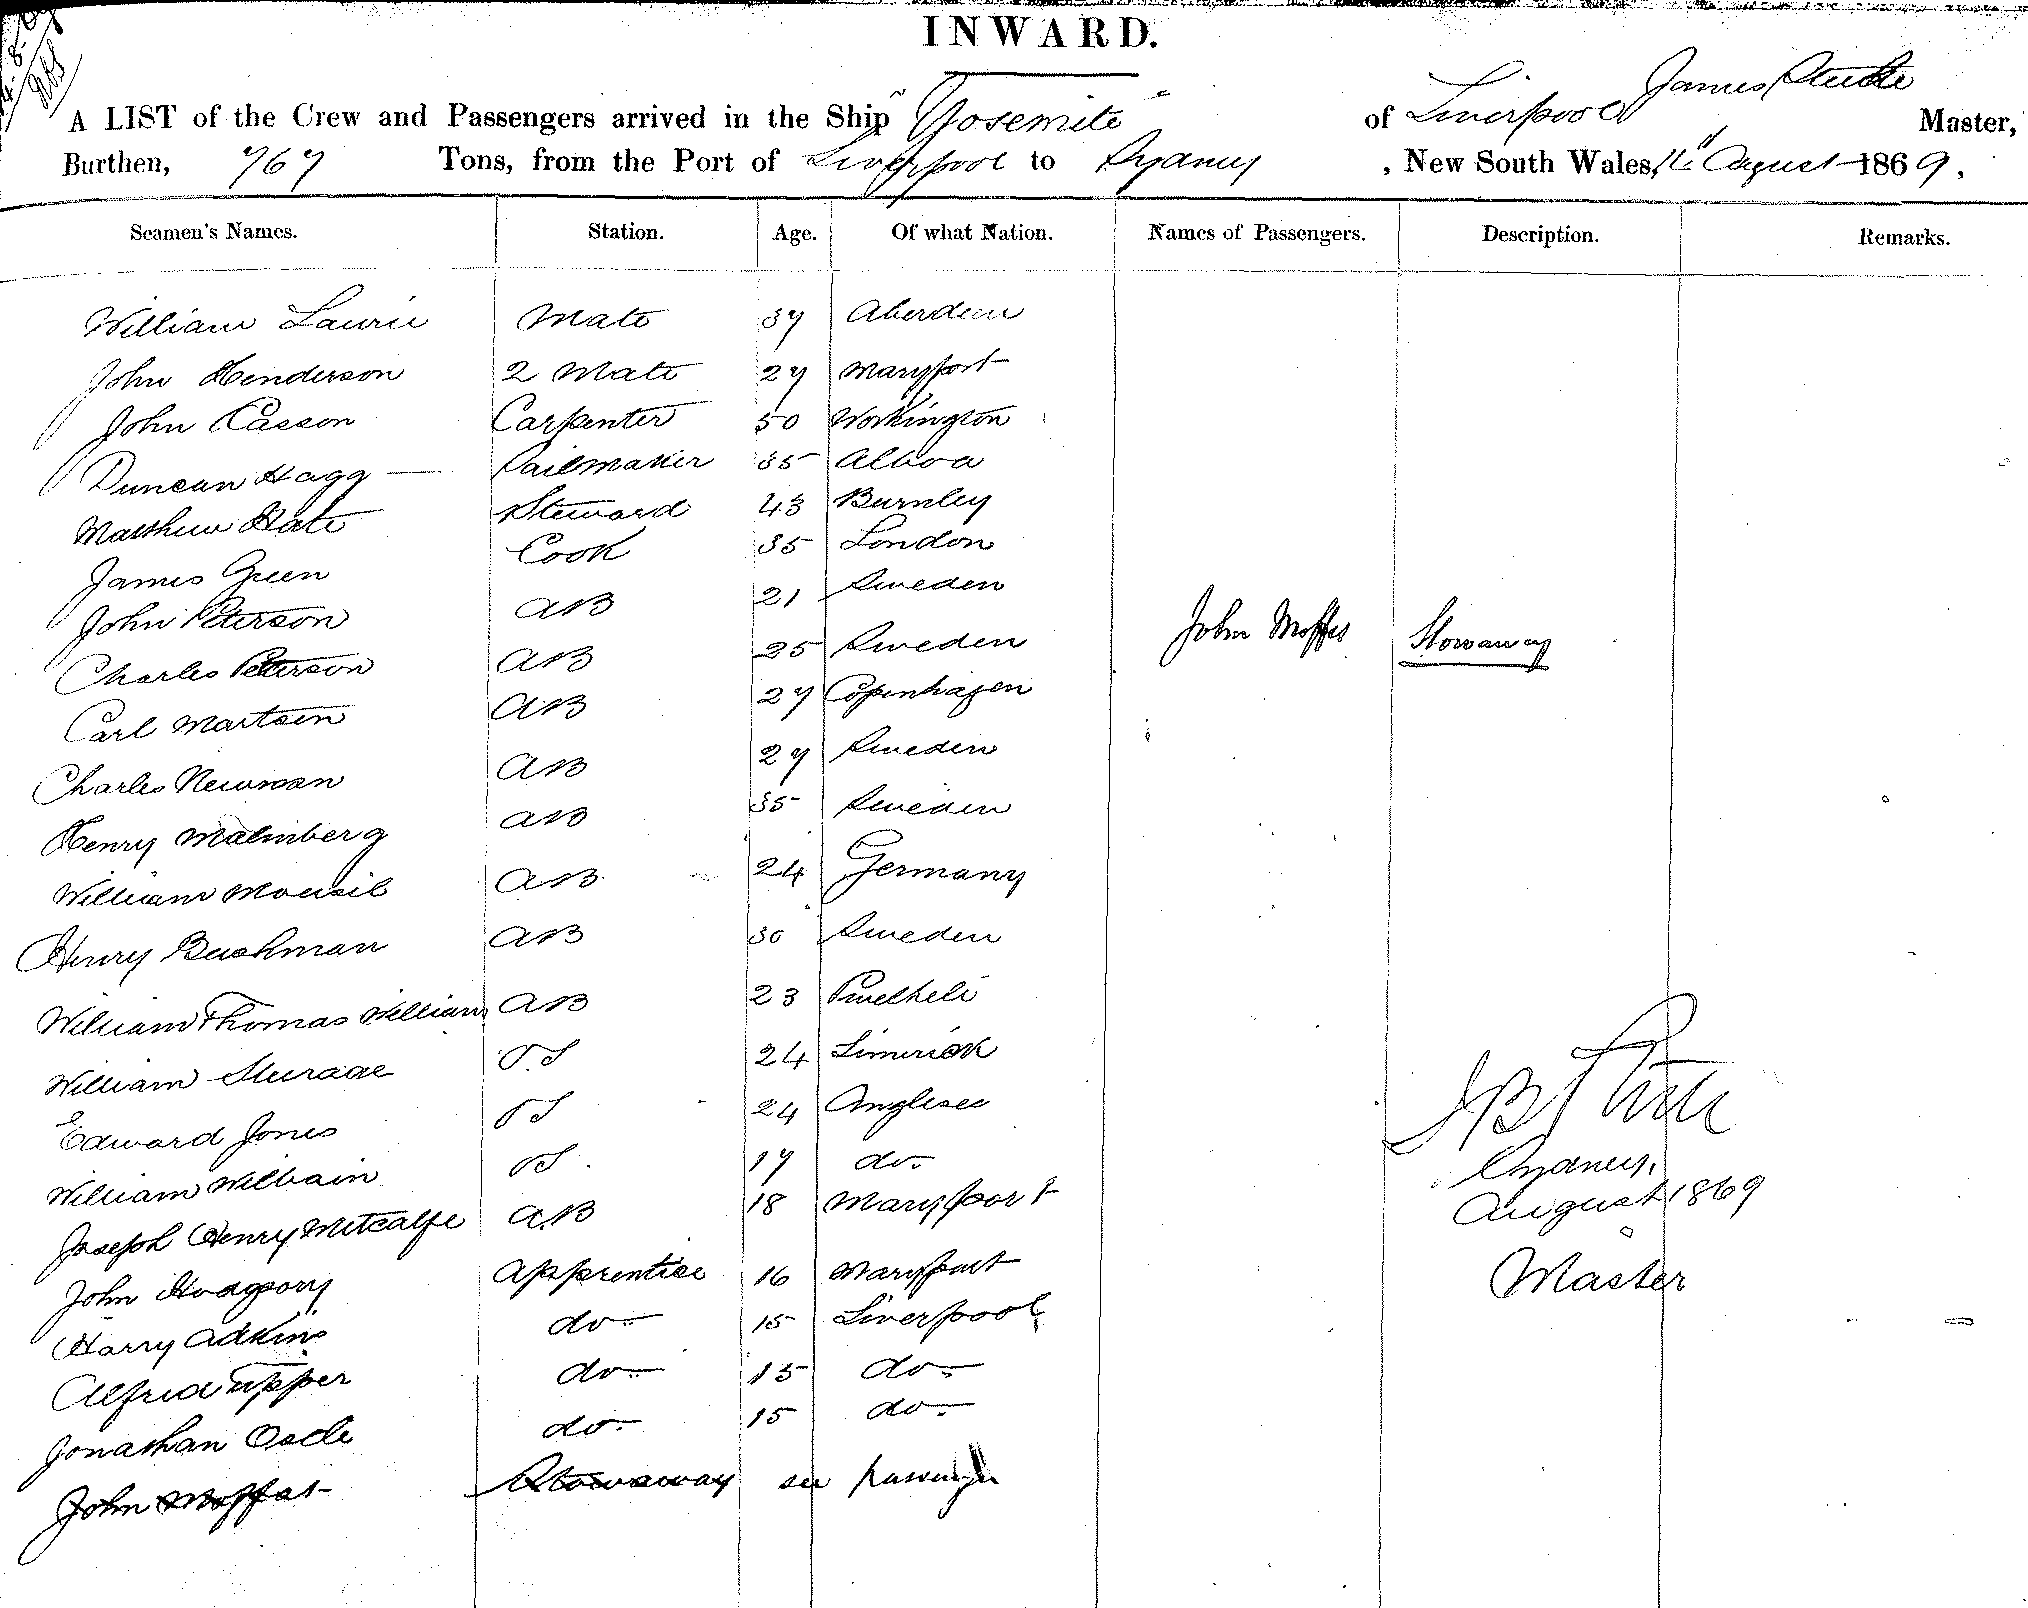 INWARD.
James
A LIST of the Crew and Passengers arrived in the Ship "Yosemite" of Liverpool Master,
Burthen, 767 Tons, from the Port of Liverpool to Sydney, New South Wales, August 1869.
Seamen's Names. Station. Age. Of what Nation. Names of Passengers. Description. Remarks.
William Laurie Mate 37 Aberdeen
John Henderson 2 Mate 27 Maryport
John Casson Carpenter 50 Workington
Duncan Hagg Sailmaker 35 Alloa
Matthew Hate Steward 43 Burnley
James Green Cook 35 London
John Peterson AB 21 Sweden
Charles Peterson AB 25 Sweden John Moffat Stowaway
Carl Martsen AB 27 Copenhagen
Charles Newman AB 27 Sweden
Henry Malmberg AB 35 Sweden
William AB 24 Germany
Henry Bushman AB 30 Sweden
William Thomas William AB 23 Pwelheli
William OS 24 Limerick
Edward Jones OS 24 Anglesec
William OS. 17 do.
Joseph Henry Metcalfe AB 18 Maryport
John Hodgson Apprentice 16 Maryport
Harry Adkins do 15 Liverpool
Alfred Tipper do 15 do
Jonathan do 15 do
John Moffat Stowaway see passenger
Sydney,
August 1869
Master